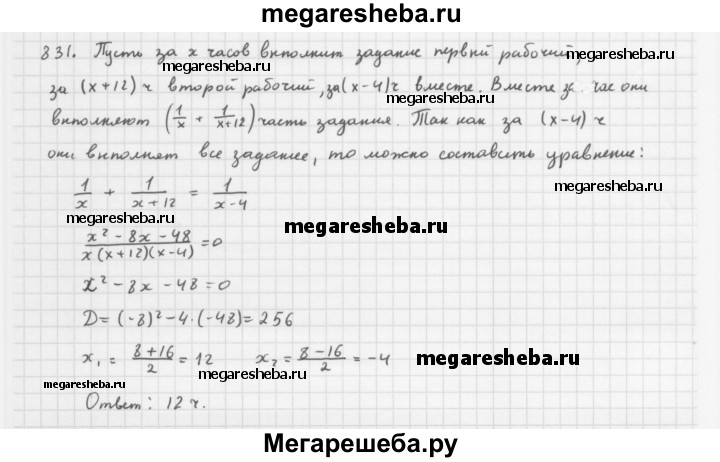 megaresheba.ru
831. Пусть за x часов выполнит задание первый рабочий,
megaresheba.ru
за (x+12) ч второй рабочий, за (x-4) ч вместе. Вместе за час они
megaresheba.ru
выполняют (1/x + 1/(x+12)) часть задания. Так как за (x-4) ч
они выполнят все задание, то можно составить уравнение:
1/x + 1/(x+12) = 1/(x-4)
megaresheba.ru
megaresheba.ru
megaresheba.ru
(x² - 8x - 48)/(x(x+12)(x-4)) = 0
x² - 8x - 48 = 0
D = (-8)² - 4·(-48) = 256
x₁ = (8+16)/2 = 12 x₂ = (8-16)/2 = -4
megaresheba.ru
megaresheba.ru
megaresheba.ru
Ответ: 12 ч.
Мегарешеба.ру